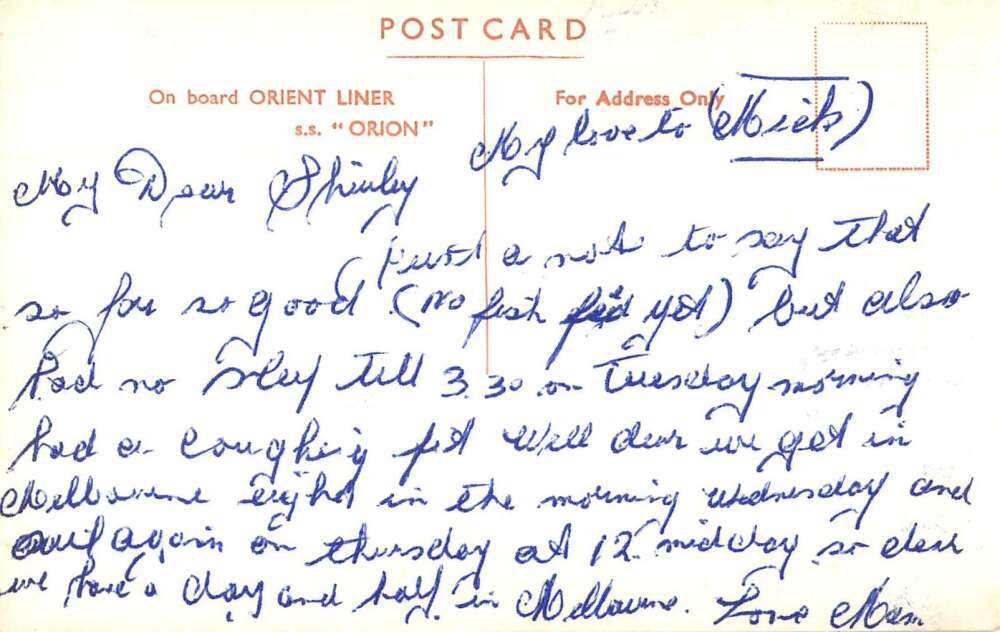 POST CARD
On board ORIENT LINER
s.s. "ORION"
For Address Only
My love to (Mick)
My Dear Shirley
Just a note to say that
so far so good (No fish fed yet) but also
had no sleep till 3.30 on Tuesday morning
had a coughing fit Well dear we get in
Melbourne eight in the morning Wednesday and
sail again on thursday at 12 midday so dear
we have a day and half in Melbourne. Love Mum